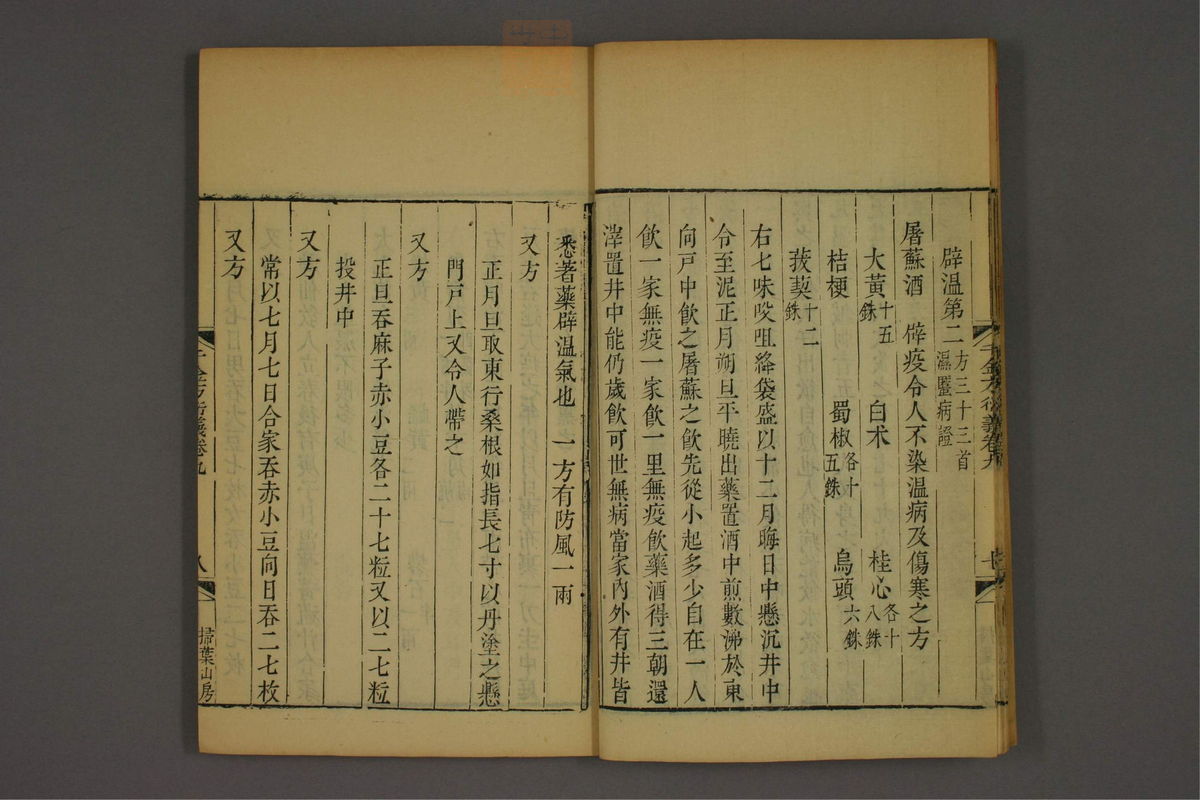 辟温第二方三十三首
瘟𧏾病證
屠蘇酒 辟疫令人不染温病及傷寒之方
大黃十五銖 白朮 桂心各十八銖
桔梗 蜀椒各十五銖 烏頭六銖
菝葜十二銖
右七味㕮咀絳袋盛以十二月晦日中懸沉井中
令至泥正月朔旦平曉出藥置酒中煎數沸於東
向戸中飲之屠蘇之飲先從小起多少自在一人
飲一家無疫一家飲一里無疫飲藥酒得三朝還
滓置井中能仍歲飲可世無病當家內外有井皆
悉著藥辟温氣也 一方有防風一兩
又方
正月旦取東行桑根如指長七寸以丹塗之懸
門戸上又令人帶之
又方
正旦吞麻子赤小豆各二十七粒又以二七粒
投井中
又方
常以七月七日合家吞赤小豆向日吞二七枚
又方
千金方衍義卷九
八
掃葉山房